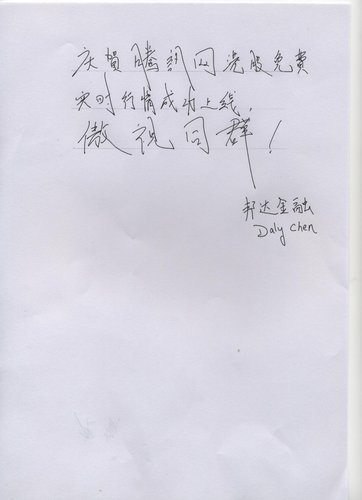 庆賀腾訊网港股免費
实时行情成功上线,
傲視同群!
邦达金融
Daly Chen